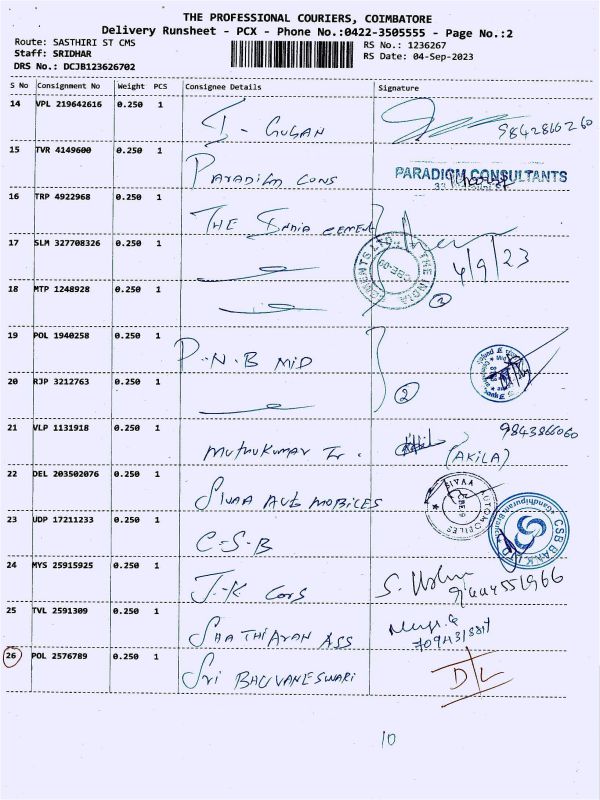 THE PROFESSIONAL COURIERS, COIMBATORE
Delivery Runsheet - PCX - Phone No.:0422-3505555 - Page No.:2
Route: SASTHIRI ST CMS
RS No.: 1236267
Staff: SRIDHAR
RS Date: 04-Sep-2023
DRS No.: DCJB123626702
S No Consignment No Weight PCS Consignee Details Signature
14 VPL 219642616 0.250 1 GUGAN 9842860260
15 TVR 4149600 0.250 1 Paradigm Cons PARADIGM CONSULTANTS
16 TRP 4922968 0.250 1 THE India cement
17 SLM 327708326 0.250 1 4/9/23
18 MTP 1248928 0.250 1 3
19 POL 1940258 0.250 1 P.N.B MID
20 RJP 3212763 0.250 1 2
21 VLP 1131918 0.250 1 Muthukumar Tr. 9843866060
(AKILA)
22 DEL 203502076 0.250 1 Sivaa Automobiles SIVAA AUTOMOBILES
23 UDP 17211233 0.250 1 C-S-B CSB BANK LTD Gandhipuram Branch
24 MYS 25915925 0.250 1 J.K Cors
25 TVL 2591309 0.250 1 Shathiavan Ass
26 POL 2576789 0.250 1 Sri Bhuvaneswari D/L
10